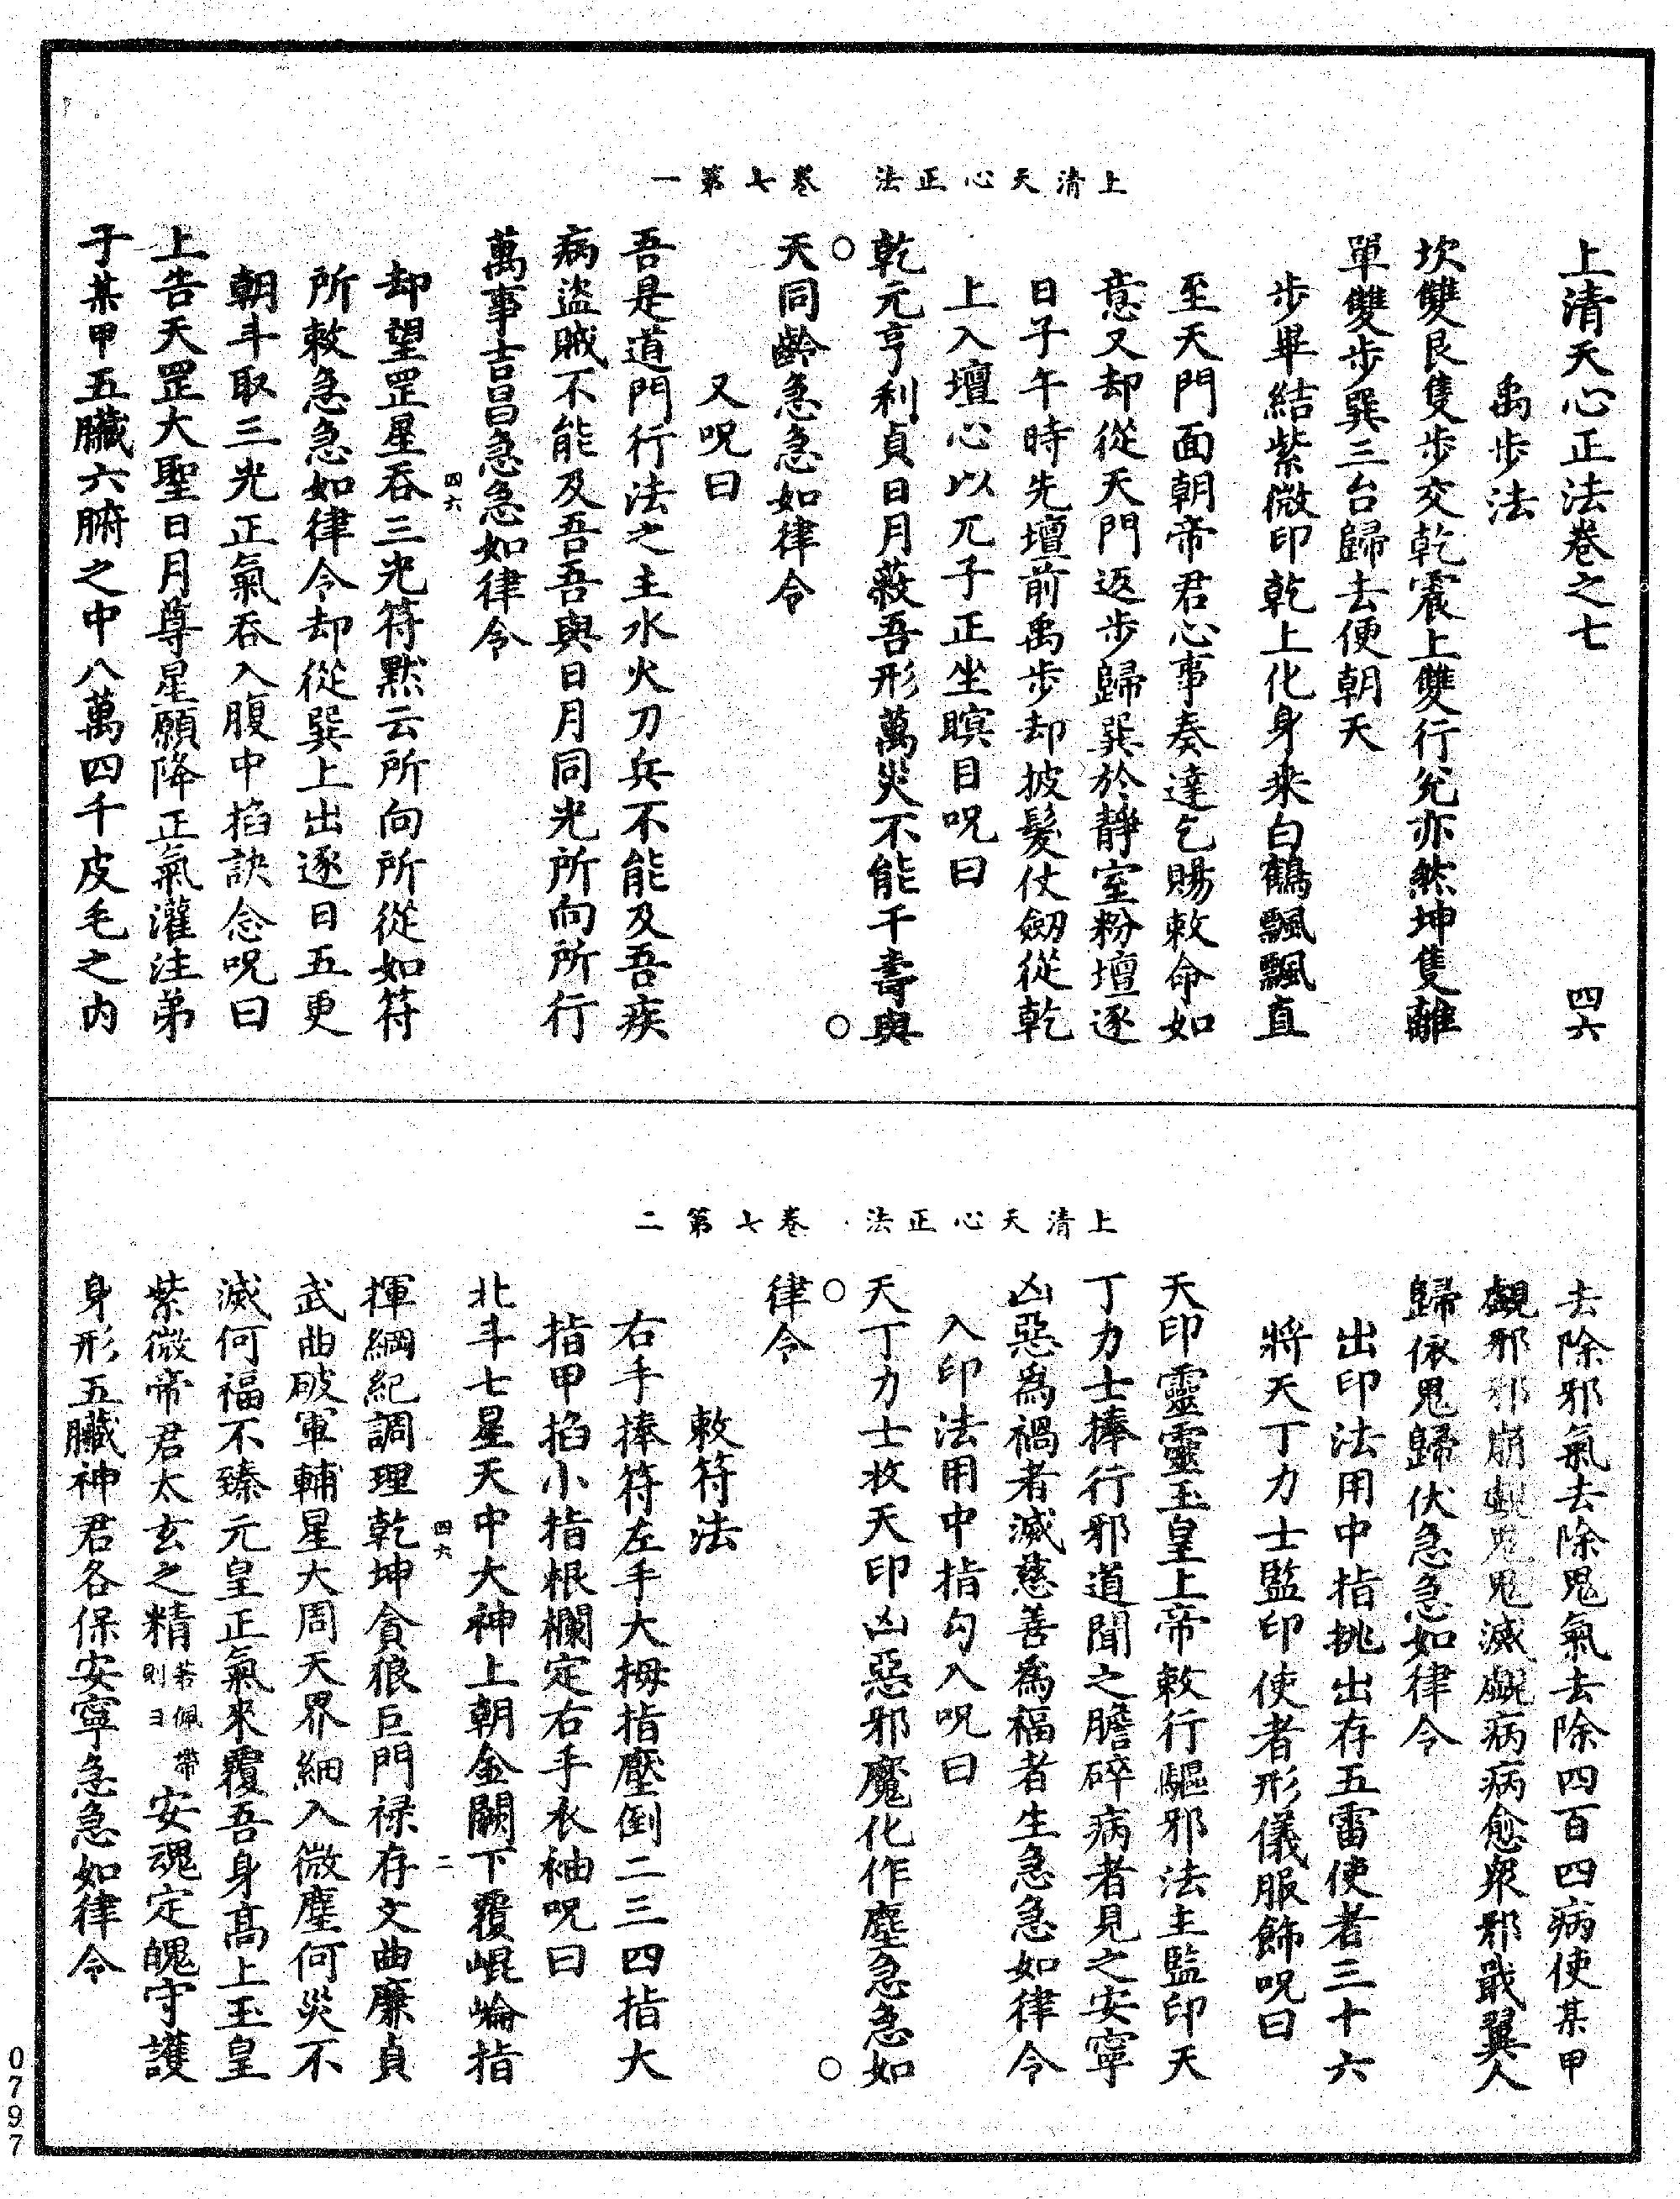 上清天心正法 卷七第一
上清天心正法卷之七 四六
禹步法
坎雙艮隻步交乾震上雙行兊亦然坤隻離
單雙步巽三台歸去便朝天
步畢結紫微印乾上化身来白鶴飄飄直
至天門面朝帝君心事奏達乞賜敕命如
意又却從天門返步歸巽於靜室粉壇逐
日子午時先壇前禹步却披髮仗劒從乾
上入壇心以兀子正坐瞑目呪曰
乾元亨利貞日月蔽吾形萬災不能千壽與
天同齡急急如律令
又呪曰
吾是道門行法之主水火刀兵不能及吾疾
病盜賊不能及吾吾與日月同光所向所行
萬事吉昌急急如律令
四六
却望罡星吞三光符黙云所向所從如符
所敕急急如律令却從巽上出逐日五更
朝斗取三光正氣吞入腹中掐訣念呪曰
上告天罡大聖日月尊星願降正氣灌注弟
子某甲五臟六腑之中八萬四千皮毛之内
上清天心正法 卷七第二
去除邪氣去除鬼氣去除四百四病使某甲
覷邪邪崩覷鬼鬼滅覷病病愈衆邪戢翼人
歸依鬼歸伏急急如律令
出印法用中指挑出存五雷使者三十六
將天丁力士監印使者形儀服飾呪曰
天印靈靈玉皇上帝敕行驅邪法主監印天
丁力士捧行邪道聞之膽碎病者見之安寧
凶惡為禍者滅慈善為福者生急急如律令
入印法用中指勾入呪曰
天丁力士收天印凶惡邪魔化作塵急急如
律令
敕符法
右手捧符左手大拇指壓倒二三四指大
指甲掐小指根欄定右手衣袖呪曰
北斗七星天中大神上朝金闕下覆崐崘指
四六 二
揮綱紀調理乾坤貪狼巨門禄存文曲廉貞
武曲破軍輔星大周天界細入微塵何災不
滅何福不臻元皇正氣來覆吾身高上玉皇
紫微帝君太玄之精若佩帶則ヨ安魂定魄守護
身形五臟神君各保安寧急急如律令
0797